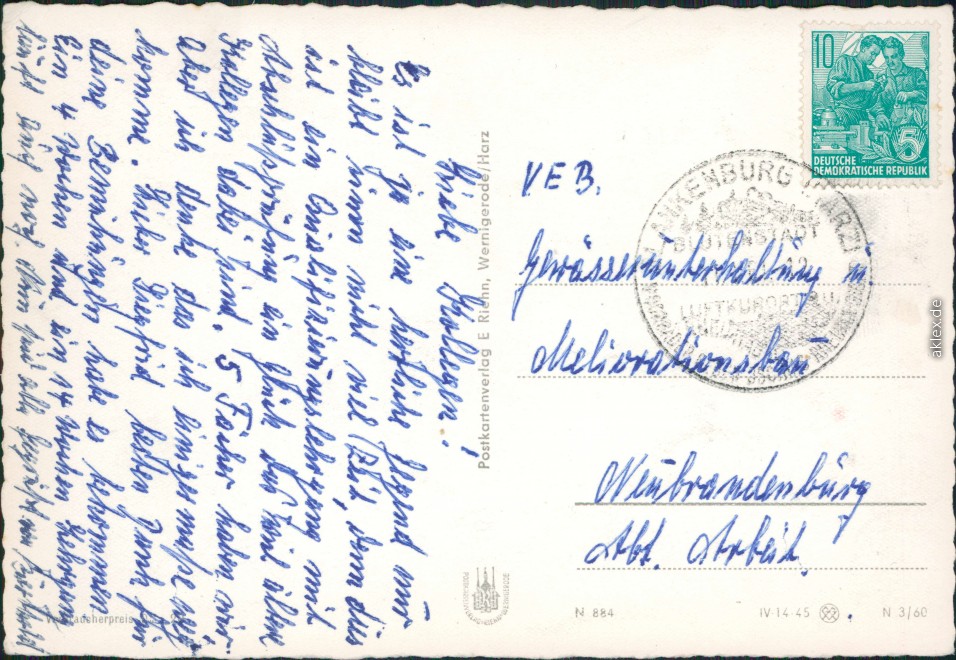 Liebe Kollegen!
Es ist ja eine herrliche Gegend nur
bleibt einem nicht viel Zeit, denn dies
ist ein Qualifizierungslehrgang mit
Abschlußprüfung ein Glück das viel ältere
Kollegen dabei sind, 5 Fächer haben wir
Aber ich denke das ich einigermaßen
komme. Lieber Siegfried haben Dank für
deine Bemühungen habe es bekommen
Ein 4 Wochen und ein 14 Wochen Lehrgang
Postkartenverlag E. Riehn, Wernigerode/Harz
10
5
DEUTSCHE
DEMOKRATISCHE REPUBLIK
BLANKENBURG (HARZ)
BLÜTENSTADT
LUFTKURORT U.
VEB.
Gewässerunterhaltung u
Meliorationsbau
Neubrandenburg
Abt. Arbeit.
POSTKARTENVERLAG RIEHN WERNIGERODE
Verbraucherpreis
N 884
IV-14-45
N 3/60
aklex.de